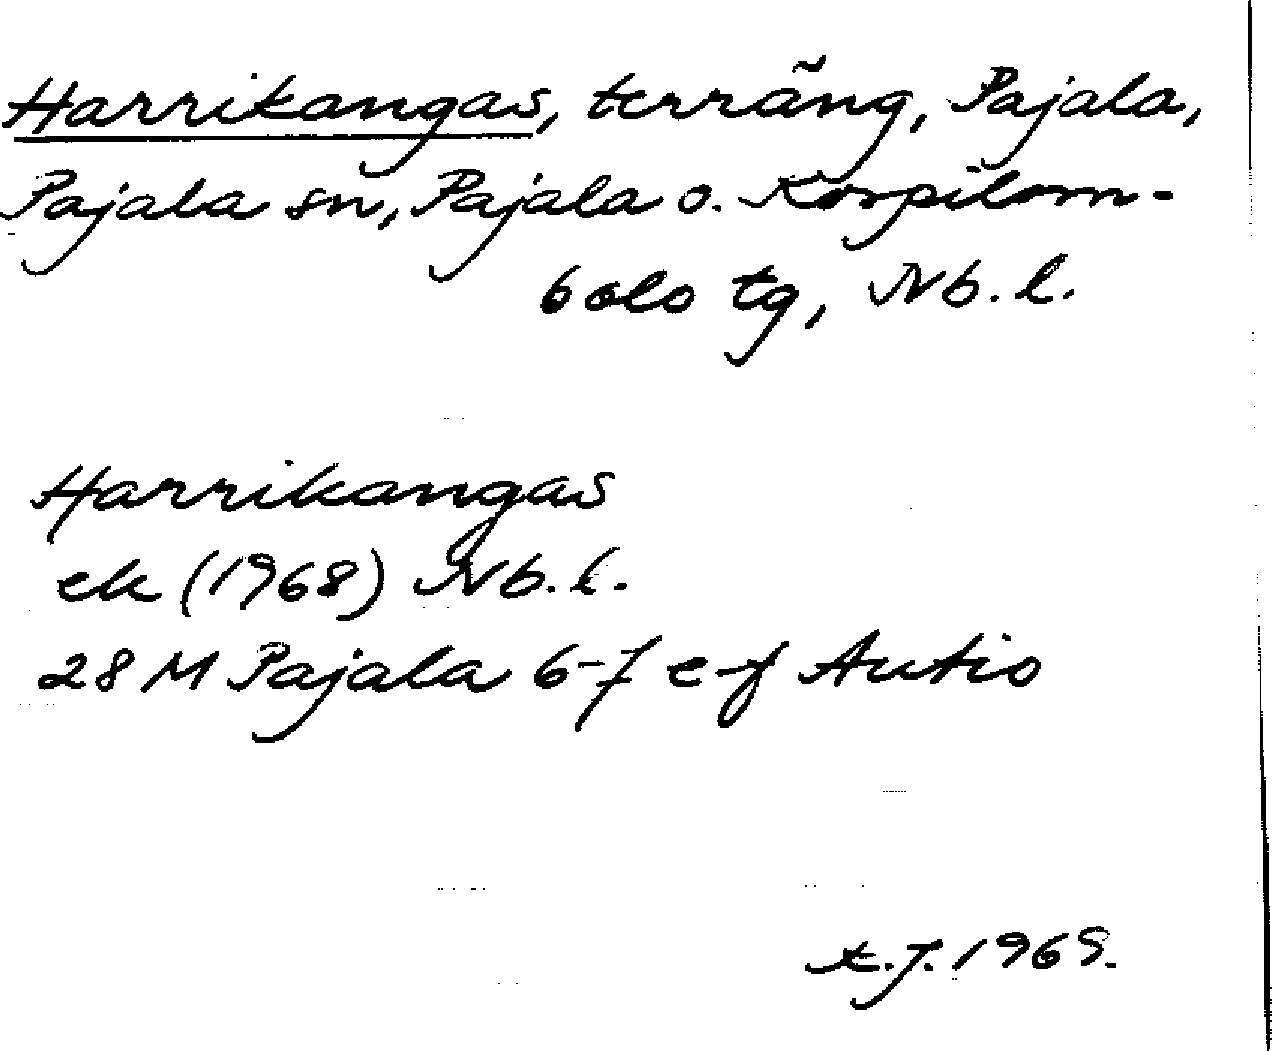 Harrikangas, terräng, Pajala,
Pajala sn, Pajala o. Korpilom-
bolo tg, Nb. l.
Harrikangas
ek (1968) Nb. l.
28 M Pajala 6-7 e-f Autio
1969.